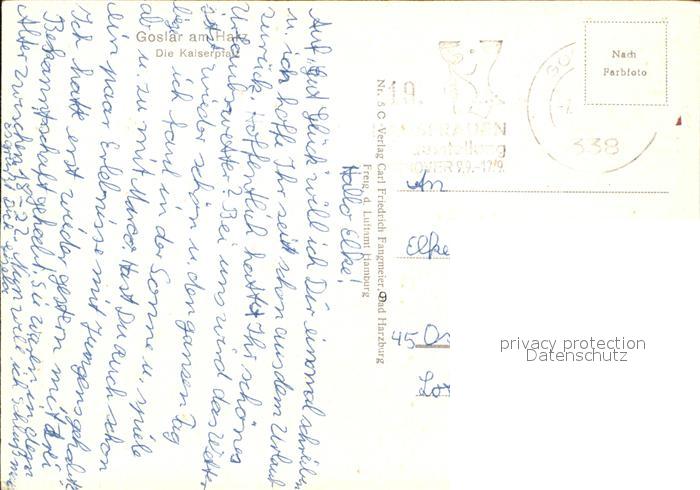 Goslar am Harz
Die Kaiserpfalz
Hallo Elke!
Auf gut Glück will ich Dir einmal schreiben
u. ich hoffe Ihr seit schon aus dem Urlaub
zurück. Hoffentlich hattet Ihr schönes
Urlaubswetter? Bei uns wird das Wetter
jetzt wieder schön u. den ganzen Tag
liege ich faul in der Sonne u. spiele
ab u. zu mit Marco. Hast Du auch schon
ein paar Erlebnisse mit Jungens gehabt?
Ich hatte erst wieder gestern mit drei
Bekanntschaft gehabt. Sie waren in dem
Alter zwischen 18-22. Nun will ich schließen
Es grüßt Dich
Nr. 5 C. Verlag Carl Friedrich Fangmeier, Bad Harzburg
Freig. d. Luftamt Hamburg
19.
HANNOVER 9.9.-17.9.
338
Nach
Farbfoto
An
Elke
45 Os
privacy protection
Datenschutz